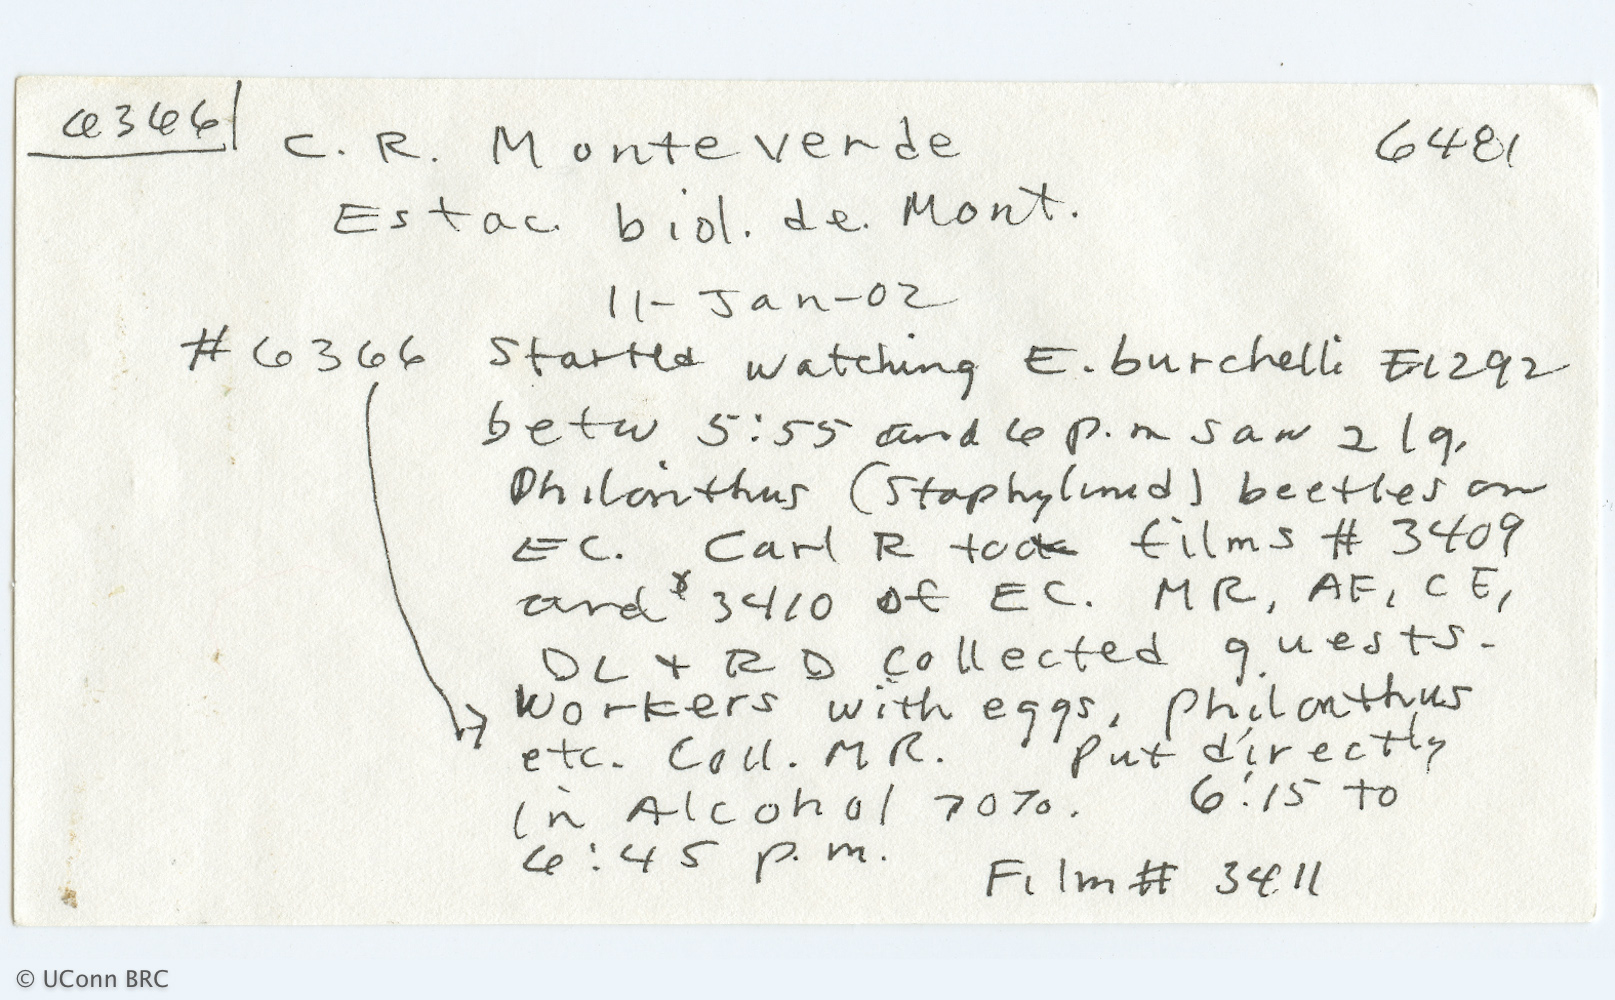 6366 C. R. Monteverde 6481
Estac. biol. de. Mont.
11-Jan-02
#6366 Started watching E. burchelli E-1292
betw 5:55 and 6 p.m saw 2 lg.
Philonthus (Staphylinid) beetles on
EC. Carl R took films # 3409
and # 3410 of EC. MR, AE, CE,
DL + RD collected guests.
Workers with eggs, Philonthus
etc. Coll. MR. Put directly
in Alcohol 70%. 6:15 to
6:45 p.m.
Film# 3411
© UConn BRC